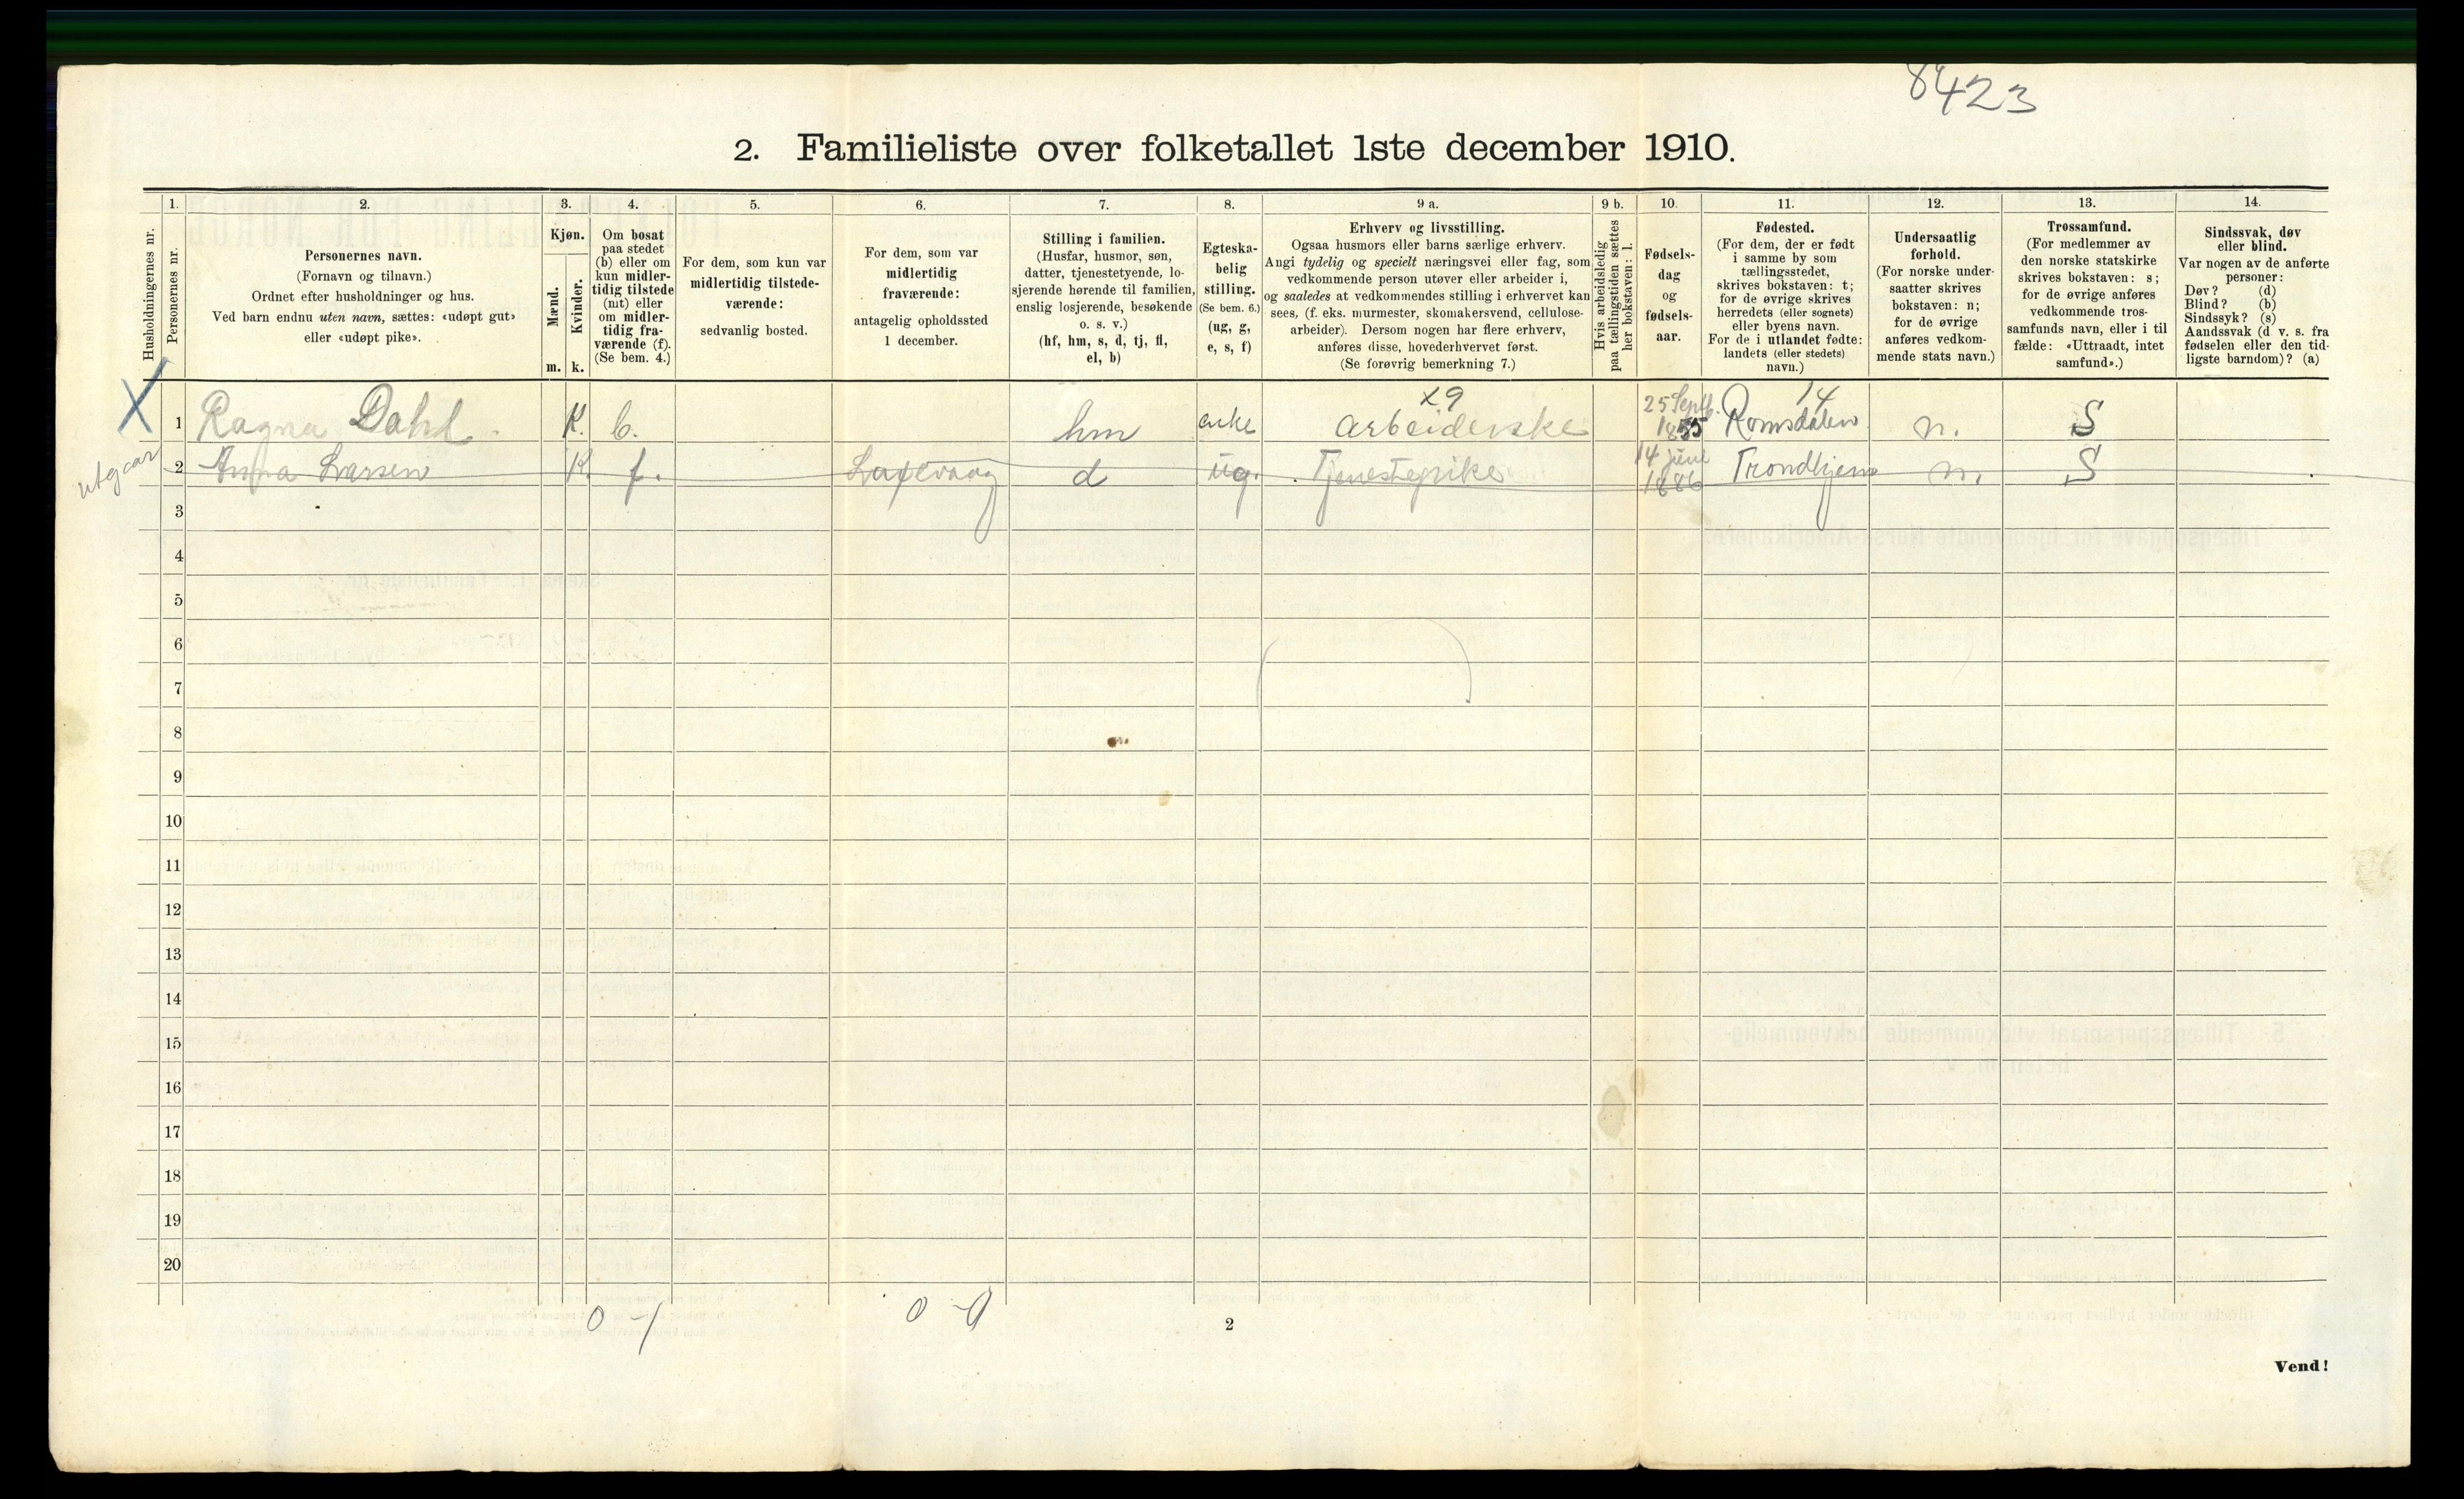 8423
2. Familieliste over folketallet 1ste december 1910.
1. 2. 3. 4. 5. 6. 7. 8. 9 a. 9 b. 10. 11. 12. 13. 14.
Husholdningernes nr.
Personernes nr.
Personernes navn.
(Fornavn og tilnavn.)
Ordnet efter husholdninger og hus.
Ved barn endnu uten navn, sættes: «udøpt gut»
eller «udøpt pike».
Kjøn.
Mænd.
Kvinder.
m. k.
Om bosat
paa stedet
(b) eller om
kun midler-
tidig tilstede
(mt) eller
om midler-
tidig fra-
værende (f).
(Se bem. 4.)
For dem, som kun var
midlertidig tilstede-
værende:
sedvanlig bosted.
For dem, som var
midlertidig
fraværende:
antagelig opholdssted
1 december.
Stilling i familien.
(Husfar, husmor, søn,
datter, tjenestetyende, lo-
sjerende hørende til familien,
enslig losjerende, besøkende
o. s. v.)
(hf, hm, s, d, tj, fl,
el, b)
Egteska-
belig
stilling.
(Se bem. 6.)
(ug, g,
e, s, f)
Erhverv og livsstilling.
Ogsaa husmors eller barns særlige erhverv.
Angi tydelig og specielt næringsvei eller fag, som
vedkommende person utøver eller arbeider i,
og saaledes at vedkommendes stilling i erhvervet kan
sees, (f. eks. murmester, skomakersvend, cellulose-
arbeider). Dersom nogen har flere erhverv,
anføres disse, hovederhvervet først.
(Se forøvrig bemerkning 7.)
Hvis arbeidsledig
paa tællingstiden sættes
her bokstaven: l.
Fødsels-
dag
og
fødsels-
aar.
Fødested.
(For dem, der er født
i samme by som
tællingsstedet,
skrives bokstaven: t;
for de øvrige skrives
herredets (eller sognets)
eller byens navn.
For de i utlandet fødte:
landets (eller stedets)
navn.)
Undersaatlig
forhold.
(For norske under-
saatter skrives
bokstaven: n;
for de øvrige
anføres vedkom-
mende stats navn.)
Trossamfund.
(For medlemmer av
den norske statskirke
skrives bokstaven: s;
for de øvrige anføres
vedkommende tros-
samfunds navn, eller i til
fælde: «Uttraadt, intet
samfund».)
Sindssvak, døv
eller blind.
Var nogen av de anførte
personer:
Døv? (d)
Blind? (b)
Sindssyk? (s)
Aandssvak (d. v. s. fra
fødselen eller den tid-
ligste barndom)? (a)
X 1 Ragna Dahl K. b. hm enke x9 Arbeiderske 25 Septb. 1855 14 Romsdalen n. S
utgaar 2 Anna Larsen K. f. Laxevaag d ug. Tjenestepike 14 juni 1886 Trondhjem n. S
3
4
5
6
7
8
9
10
11
12
13
14
15
16
17
18
19
20
0-1 0-0
2
Vend!